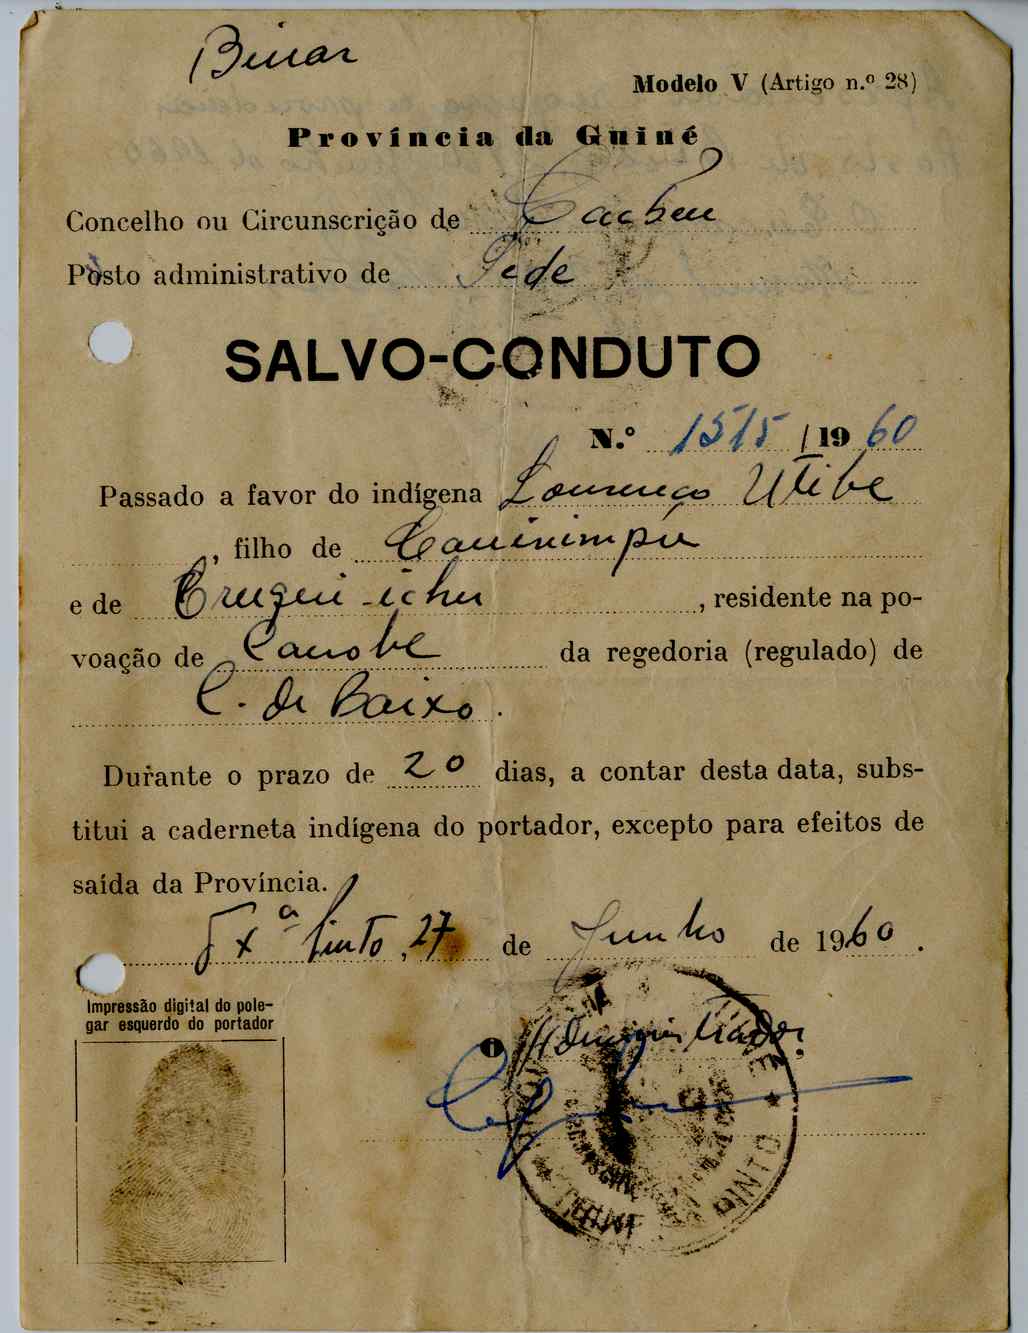 Binar
Modelo V (Artigo n.º 28)
Província da Guiné
Concelho ou Circunscrição de Cacheu
Pôsto administrativo de Sede
SALVO-CONDUTO
N.º 1515 / 19 60
Passado a favor do indígena Lourenço Utibe
, filho de
e de , residente na po-
voação de Canobe da regedoria (regulado) de
C. de Baixo.
Durante o prazo de 20 dias, a contar desta data, subs-
titui a caderneta indígena do portador, excepto para efeitos de
saída da Província.
Tx.ª Pinto, 27 de Junho de 1960.
Impressão digital do pole-
gar esquerdo do portador
O Administrador
PINTO